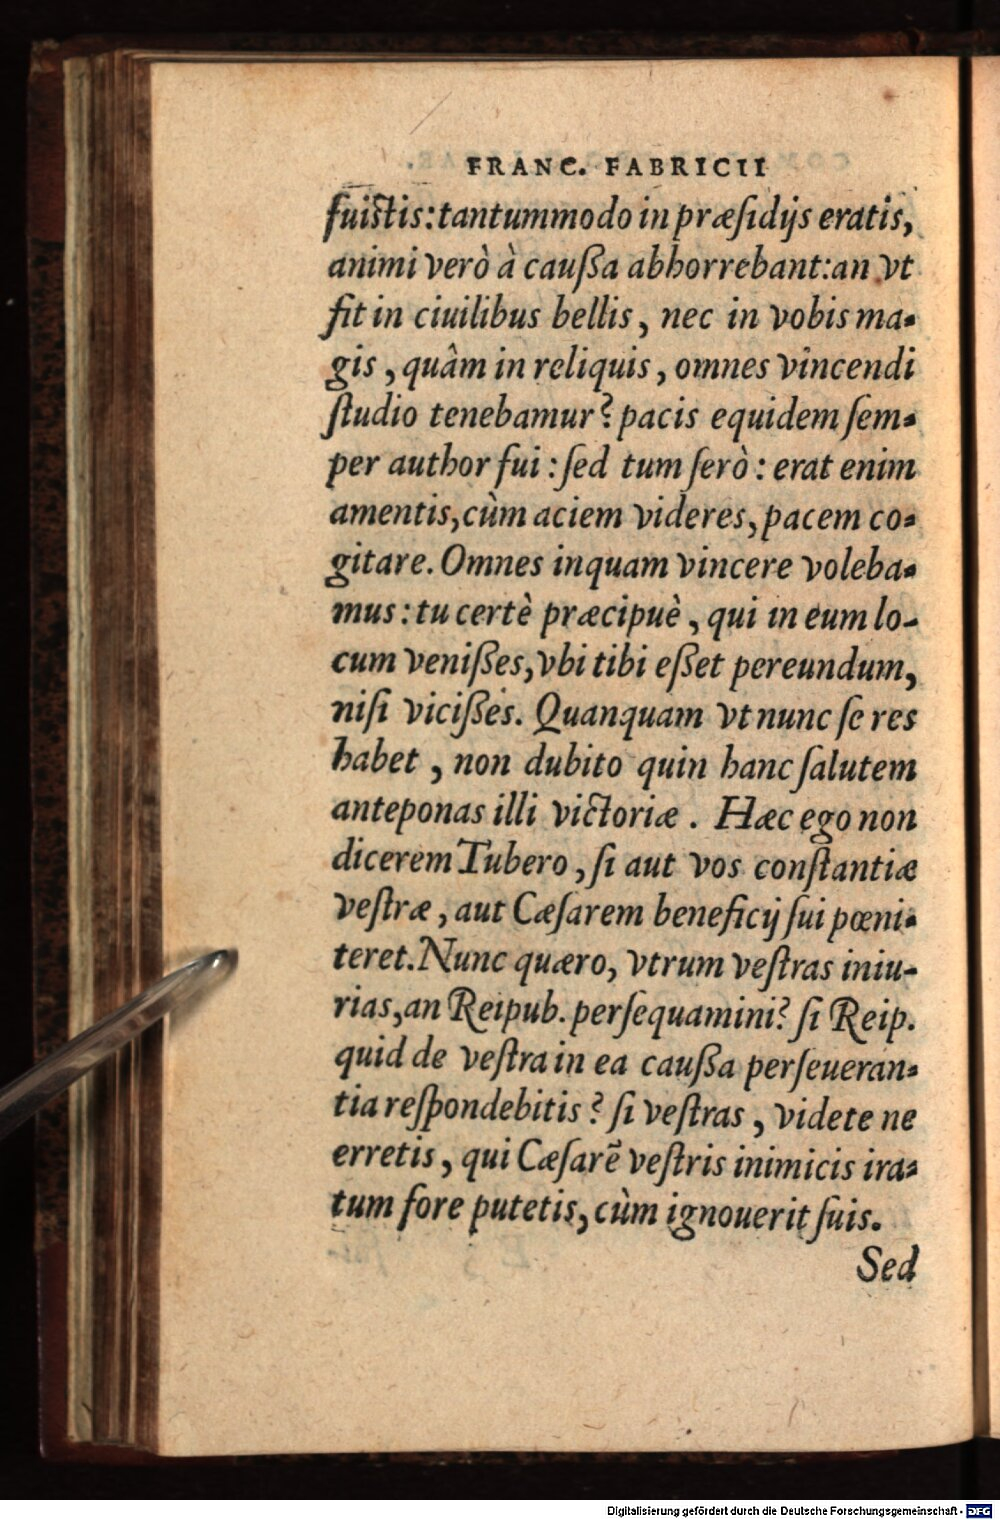 FRANC. FABRICII
fuistis: tantummodo in præsidijs eratis,
animi verò à caußa abhorrebant: an vt
fit in ciuilibus bellis, nec in vobis ma-
gis, quàm in reliquis, omnes vincendi
studio tenebamur? pacis equidem sem-
per author fui: sed tum serò: erat enim
amentis, cùm aciem videres, pacem co-
gitare. Omnes inquam vincere voleba-
mus: tu certè præcipuè, qui in eum lo-
cum venißes, vbi tibi eßet pereundum,
nisi vicißes. Quanquam vt nunc se res
habet, non dubito quin hanc salutem
anteponas illi victoriæ. Hæc ego non
dicerem Tubero, si aut vos constantiæ
vestræ, aut Cæsarem beneficij sui pœni-
teret. Nunc quæro, vtrum vestras iniu-
rias, an Reipub. persequamini? si Reip.
quid de vestra in ea caußa perseueran-
tia respondebitis? si vestras, videte ne
erretis, qui Cæsarē vestris inimicis ira-
tum fore putetis, cùm ignouerit suis.
Sed
Digitalisierung gefördert durch die Deutsche Forschungsgemeinschaft - DFG